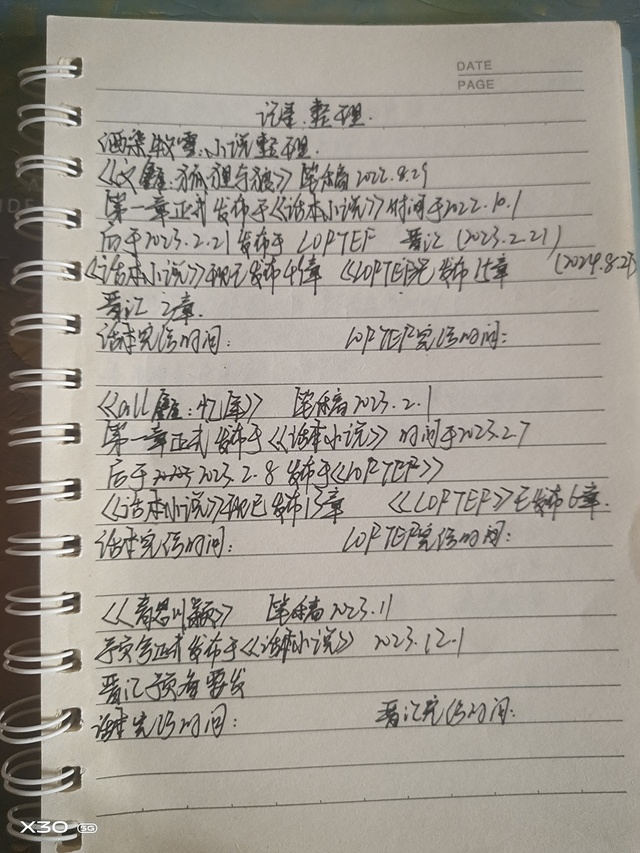 DATE
PAGE
整理.
小说整理.
《文 : 狐狸与狼》 笔稿 2022.8.29
第一章正式发布于《话本小说》时间于2022.10.1
后于2023.2.21发布于 LOFTEF 晋江 (2023.2.21)
《话本小说》现已发布45章 《LOFTEF》已发布15章 (2024.8.2)
晋江 2章.
话本完结时间: LOFTEF完结时间:
《all : 忆年》 笔稿 2023.2.1
第一章正式发布于《话本小说》 时间于2023.2.7
后于 2023.2.8 发布于《LOFTEF》
《话本小说》现已发布13章 《LOFTEF》已发布6章.
话本完结时间: LOFTEF完结时间:
笔稿 2023.11
正式发布于《话本小说》 2023.12.1
晋江预备要发
话本完结时间: 晋江完结时间:
X30 5G